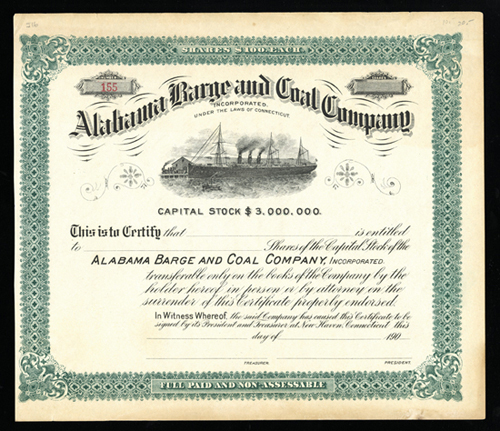 SHARES $100 EACH
155
Alabama Barge and Coal Company
INCORPORATED.
UNDER THE LAWS OF CONNECTICUT.
CAPITAL STOCK $3,000,000.
This is to Certify that is entitled
to Shares of the Capital Stock of the
ALABAMA BARGE AND COAL COMPANY, INCORPORATED.
transferable only on the books of the Company by the
holder hereof in person or by attorney on the
surrender of this Certificate properly endorsed.
In Witness Whereof, the said Company has caused this Certificate to be
signed by its President and Treasurer at New Haven, Connecticut this
day of 190
TREASURER. PRESIDENT.
FULL PAID AND NON-ASSESSABLE